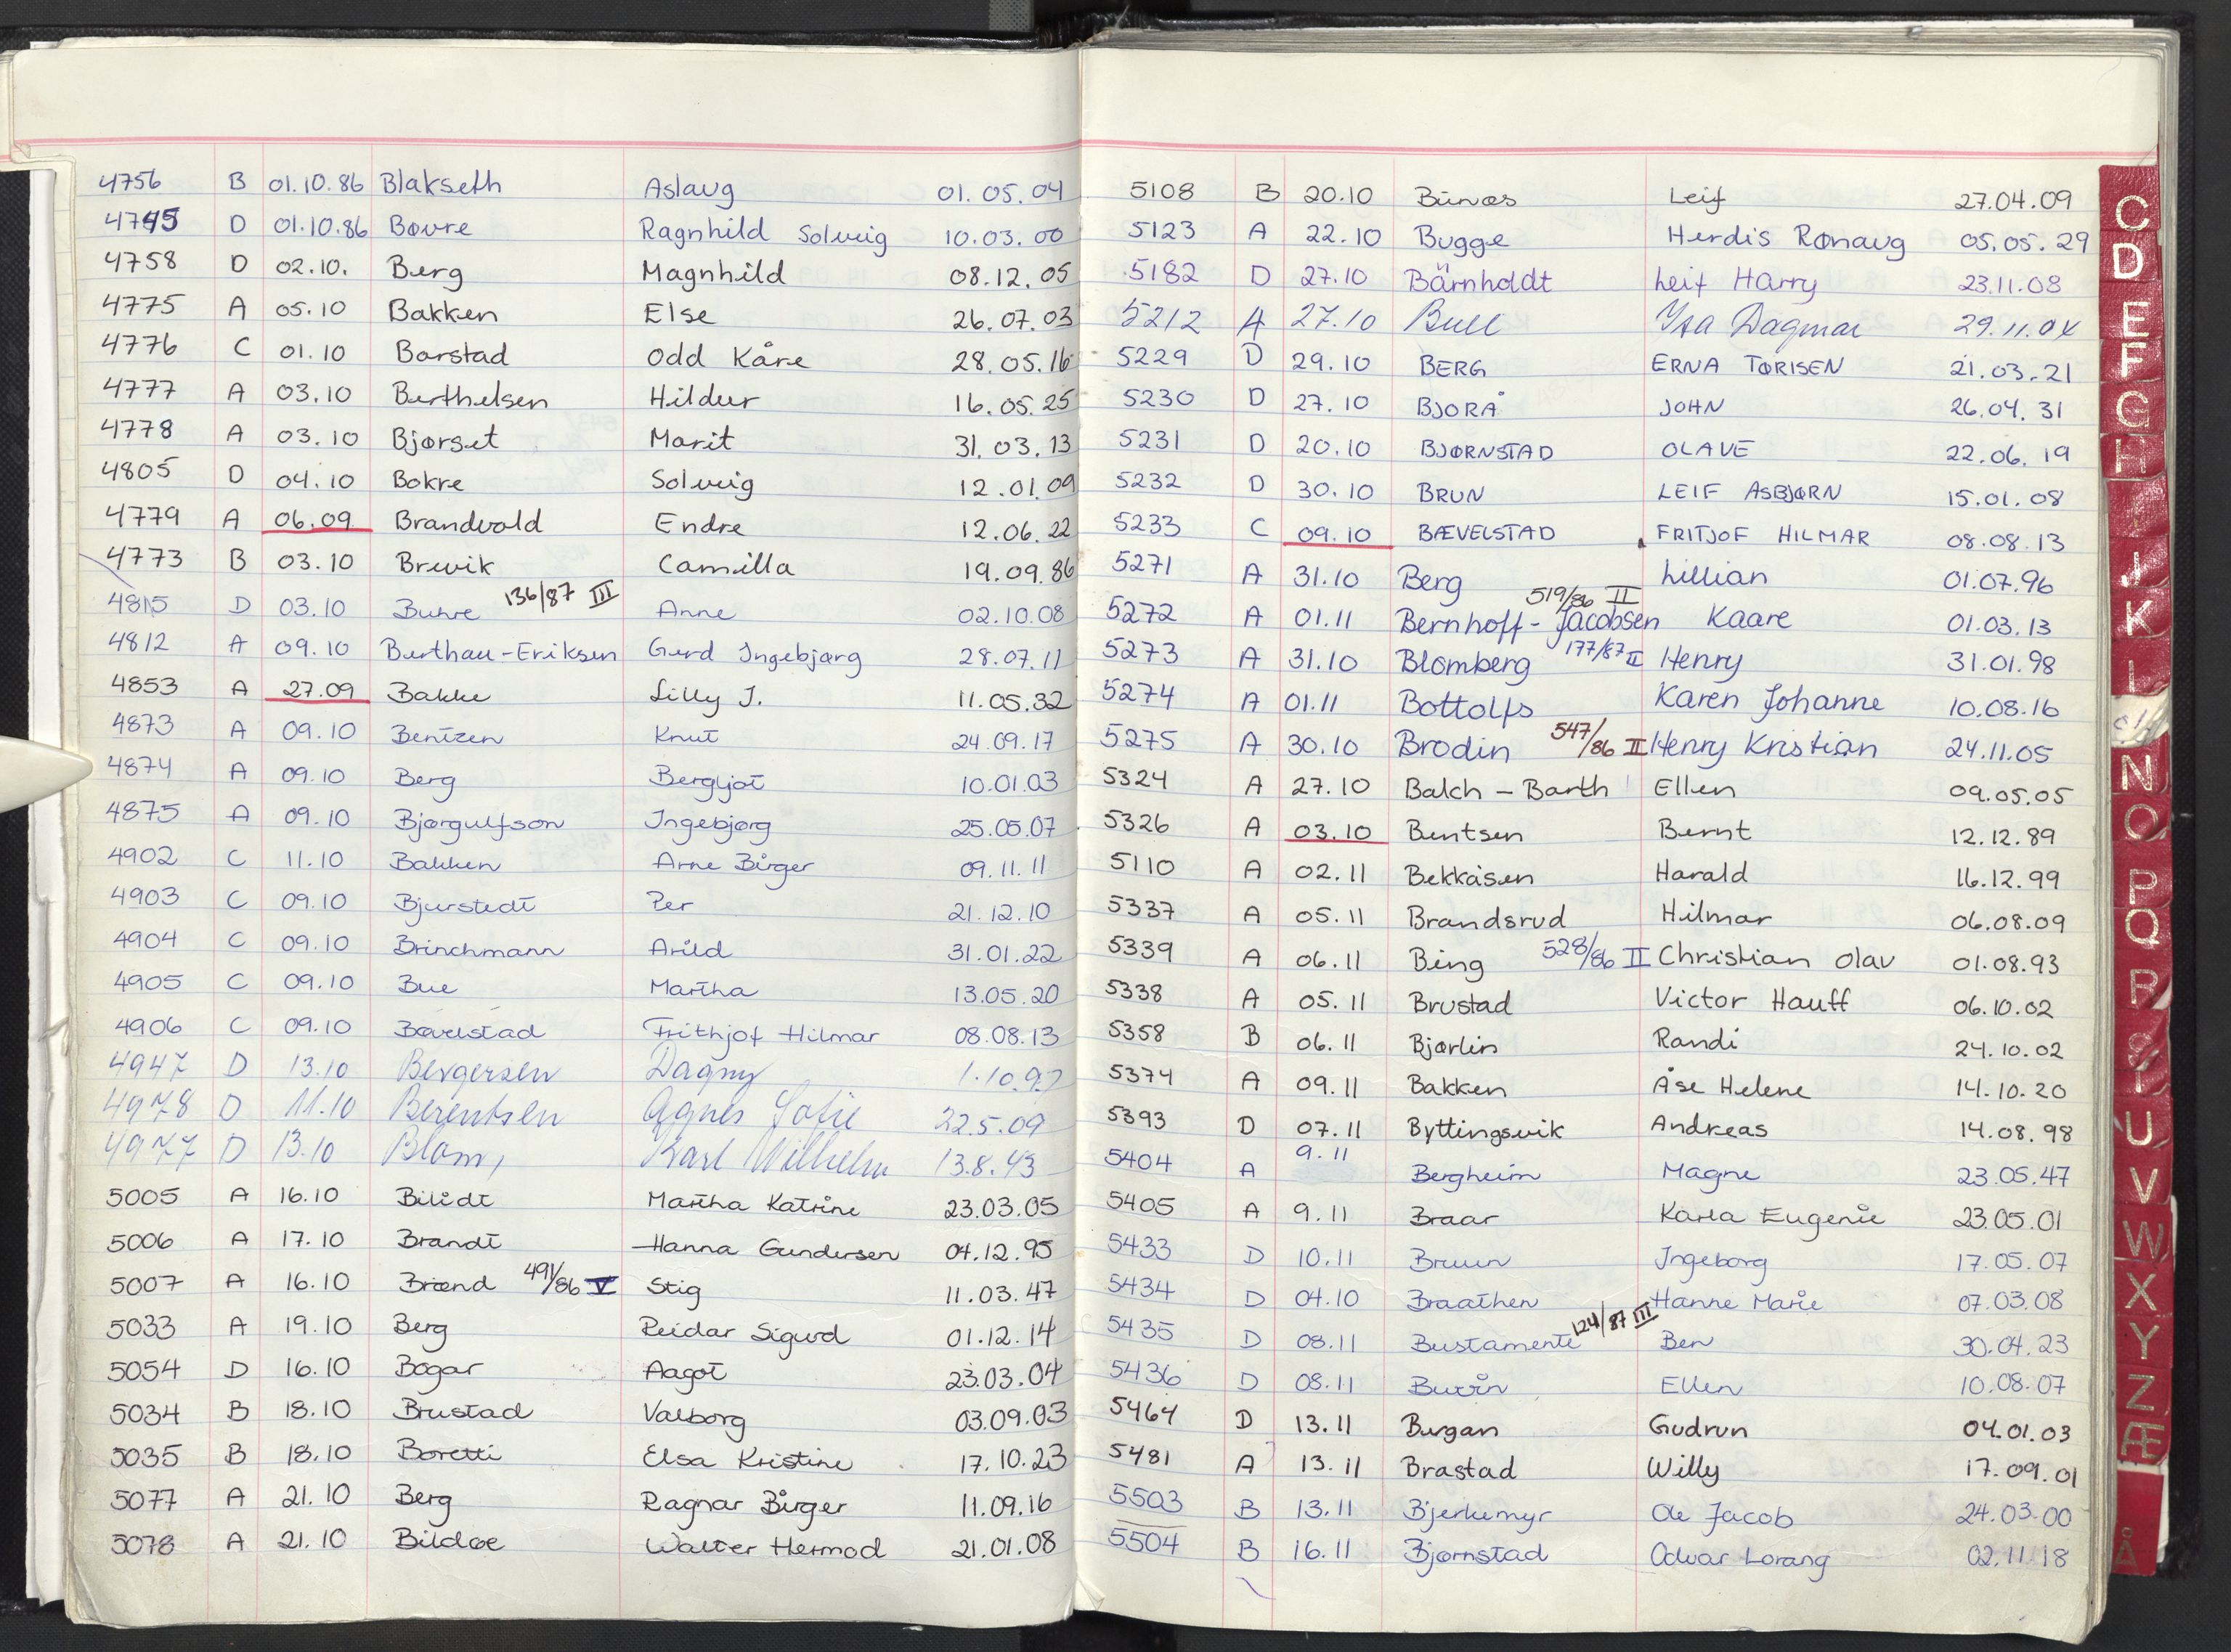 4756 B 01.10.86 Blakseth Aslaug 01.05.04
4745 D 01.10.86 Bøvre Ragnhild Solveig 10.03.00
4758 D 02.10. Berg Magnhild 08.12.05
4775 A 05.10 Bakken Else 26.07.03
4776 C 01.10 Barstad Odd Kåre 28.05.16
4777 A 03.10 Berthelsen Hildur 16.05.25
4778 A 03.10 Bjørset Marit 31.03.13
4805 D 04.10 Bokre Solveig 12.01.09
4779 A 06.09 Brandvold Endre 12.06.22
4773 B 03.10 Brevik Camilla 19.09.86
4815 D 03.10 Buhre 136/87 III Anne 02.10.08
4812 A 09.10 Berthau-Eriksen Gerd Ingebjørg 28.07.11
4853 A 27.09 Bakke Lilly J. 11.05.32
4873 A 09.10 Bentzen Knut 24.09.17
4874 A 09.10 Berg Bergljot 10.01.03
4875 A 09.10 Bjørgulfson Ingebjørg 25.05.07
4902 C 11.10 Bakken Arne Birger 09.11.11
4903 C 09.10 Bjurstedt Per 21.12.10
4904 C 09.10 Brinchmann Arild 31.01.22
4905 C 09.10 Bue Martha 13.05.20
4906 C 09.10 Bævelstad Frithjof Hilmar 08.08.13
4947 D 13.10 Bergersen Dagny 1.10.97
4978 D 11.10 Berentsen Agnes Sofie 22.5.09
4977 D 13.10 Blom, Karl Wilhelm 13.8.43
5005 A 16.10 Bilidt Martha Katrine 23.03.05
5006 A 17.10 Brandt Hanna Gundersen 04.12.95
5007 A 16.10 Brænd 491/86 V Stig 11.03.47
5033 A 19.10 Berg Reidar Sigurd 01.12.14
5054 D 16.10 Bogar Aagot 23.03.04
5034 B 18.10 Brustad Valborg 03.09.03
5035 B 18.10 Boretti Elsa Kristine 17.10.23
5077 A 21.10 Berg Ragnar Birger 11.09.16
5078 A 21.10 Bildøe Walter Hermod 21.01.08
5108 B 20.10 Bünæs Leif 27.04.09
5123 A 22.10 Bugge Herdis Rønaug 05.05.29
5182 D 27.10 Bärnholdt Leif Harry 23.11.08
5212 A 27.10 Bull Dagmar
5229 D 29.10 BERG ERNA TORISEN 21.03.21
5230 D 27.10 BJORÅ JOHN 26.04.31
5231 D 20.10 BJØRNSTAD OLAVE 22.06.19
5232 D 30.10 BRUN LEIF ASBJØRN 15.01.08
5233 C 09.10 BÆVELSTAD FRITJOF HILMAR 08.08.13
5271 A 31.10 Berg Lillian 01.07.96
5272 A 01.11 Bernhoff-Jacobsen 519/86 II Kaare 01.03.13
5273 A 31.10 Blomberg 177/87 II Henry 31.01.98
5274 A 01.11 Bottolfs Karen Johanne 10.08.16
5275 A 30.10 Brodin 547/86 II Henry Kristian 24.11.05
5324 A 27.10 Balch - Barth Ellen 09.05.05
5326 A 03.10 Bentsen Bernt 12.12.89
5110 A 02.11 Bekkåsen Harald 16.12.99
5337 A 05.11 Brandsrud Hilmar 06.08.09
5339 A 06.11 Bing 528/86 II Christian Olav 01.08.93
5338 A 05.11 Brustad Victor Hauff 06.10.02
5358 B 06.11 Bjørlin Randi 24.10.02
5374 A 09.11 Bakken Åse Helene 14.10.20
5393 D 07.11 Byttingsvik Andreas 14.08.98
5404 A 9.11 Bergheim Magne 23.05.47
5405 A 9.11 Braar Karla Eugenie 23.05.01
5433 D 10.11 Bruun Ingeborg 17.05.07
5434 D 04.10 Braathen Hanne Marie 07.03.08
5435 D 08.11 Bustamente 124/87 III Ben 30.04.23
5436 D 08.11 Ellen 10.08.07
5464 D 13.11 Burgan Gudrun 04.01.03
5481 A 13.11 Brastad Willy 17.09.01
5503 B 13.11 Bjerkemyr Ole Jacob 24.03.00
5504 B 16.11 Bjørnstad Odvar Lorang 02.11.18
C
D
E
F
G
H
J
K
L
N
O
P
Q
R
S
T
U
V
W
X
Y
Z
Æ
Å